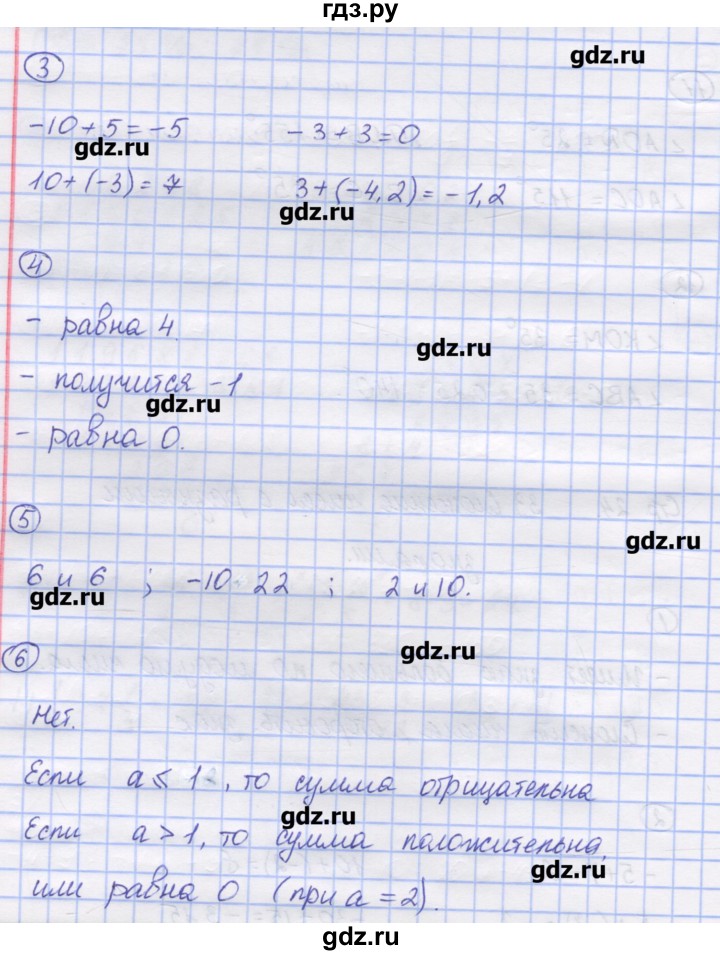 гдз.ру
gdz.ru
3
-10+5=-5 -3+3=0
gdz.ru
10+(-3)=7 3+(-4,2)=-1,2
gdz.ru
4
- равна 4.
gdz.ru
- получится -1
gdz.ru
- равна 0.
5
gdz.ru
6 и 6 ; -10 22 ; 2 и 10.
gdz.ru
6
gdz.ru
Нет.
Если a ≤ 1, то сумма отрицательна
gdz.ru
Если a > 1, то сумма положительна,
gdz.ru
или равна 0 (при a = 2).
gdz.ru